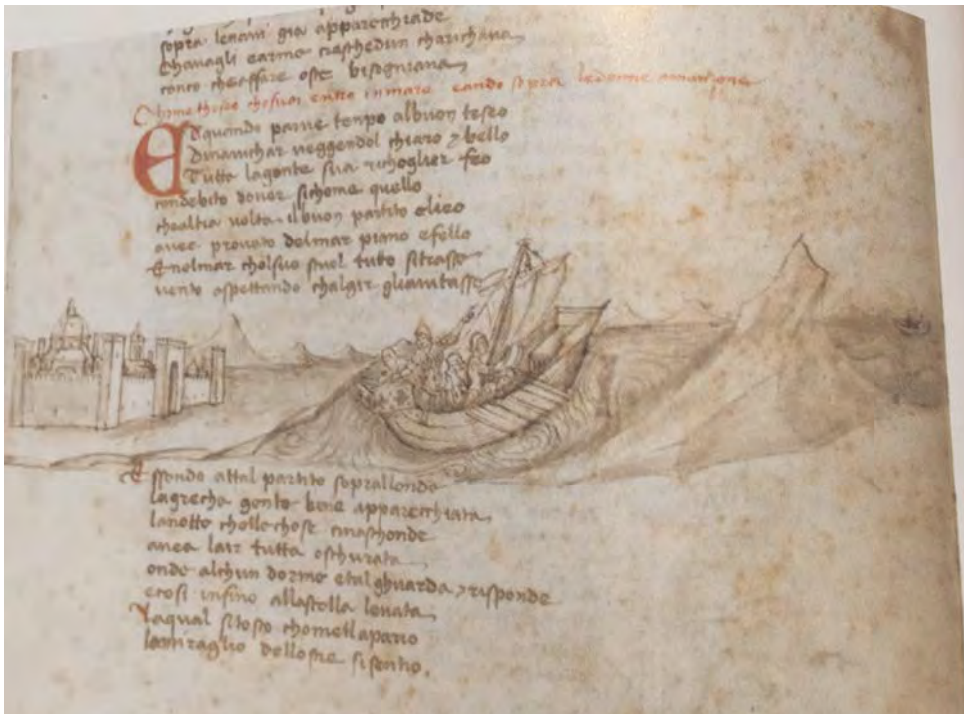 sopra lenaui gia apparecchiade
Chauagli earme ciaschedun charichaua
conco cheaffare oste bisogniaua
Chome theseo chosuoi entro inmare eando sopra ledonne amazzone
Edquando parue tenpo albuon teseo
Dinauichar ueggendol chiaro & bello
Tutta lagente sua richoglier feo
condebito douer sichome quello
chealtra uolta ilbuon partito elreo
auea prouato delmar piano efello
Enelmar cholsuo stuol tutto sitrasse
uento aspettando chalgir gliauitasse
Essendo attal partito sopralonde
lagrecha gente bene apparecchiata
lanotte chellechose cinaschonde
auea lair tutta oschurata
onde alchun dorme etal ghuarda & risponde
ecosi infino allastella leuata
laqual sitosto chomellapario
lamiraglio dellostie sisentio.